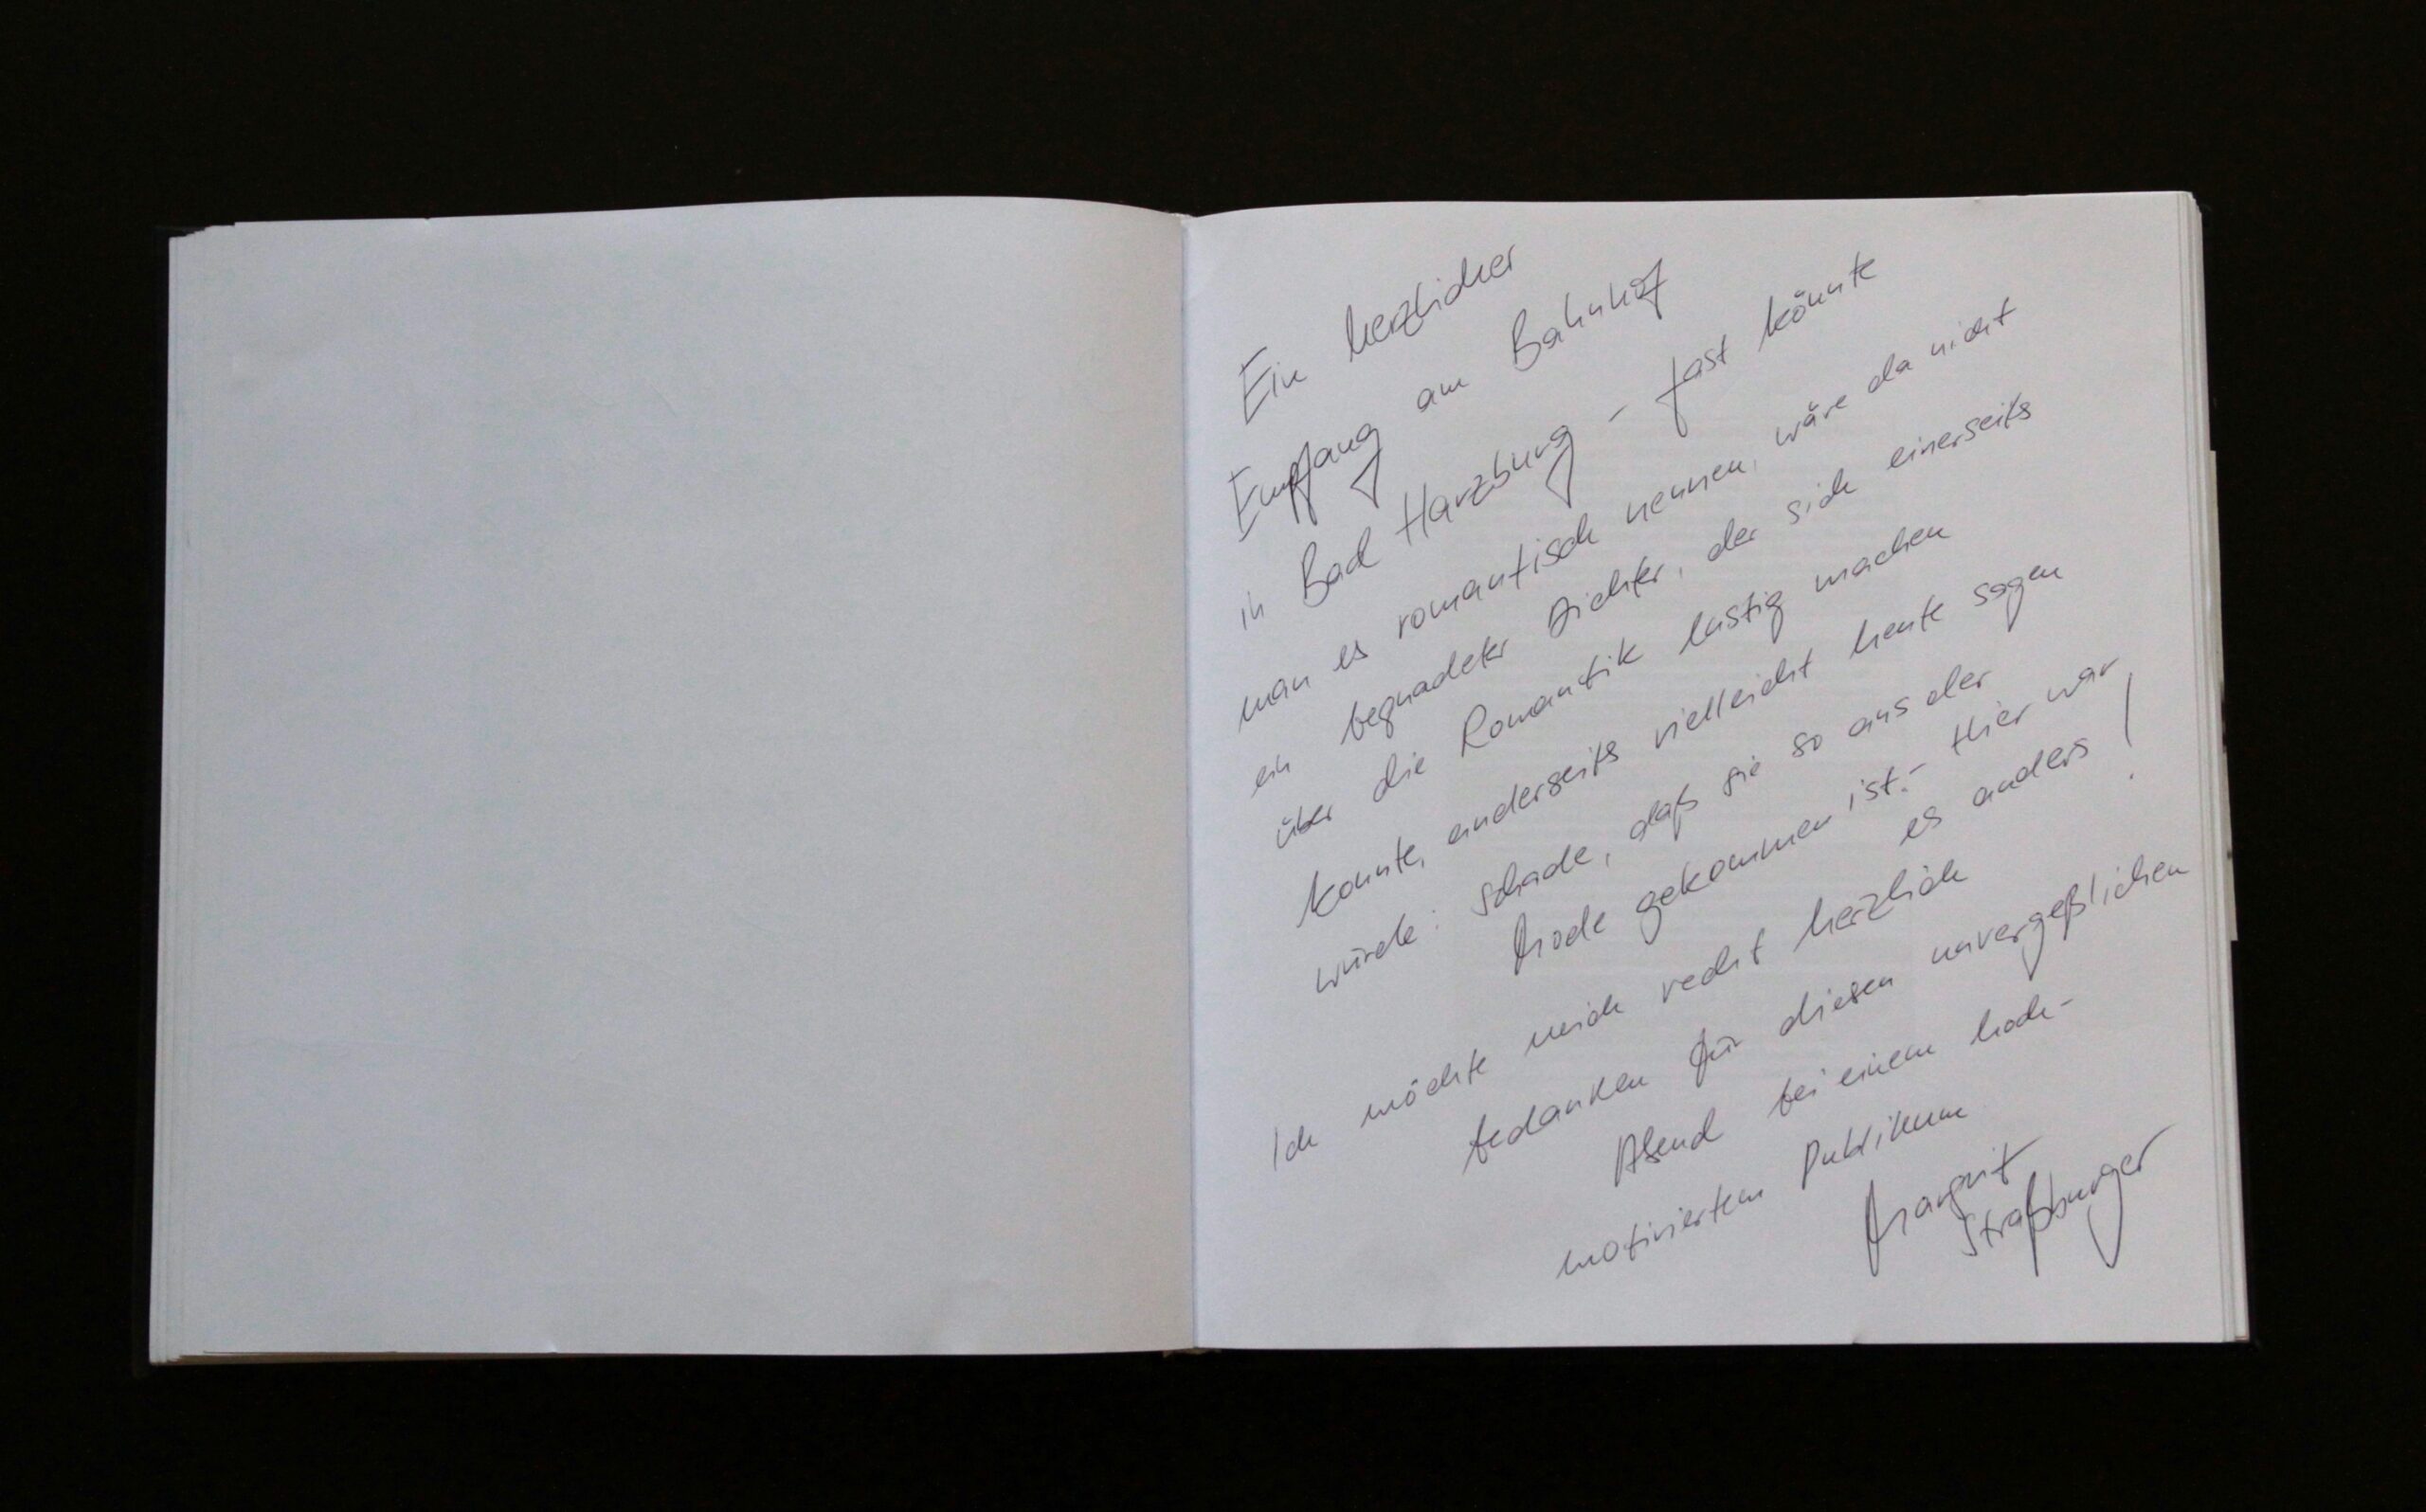 Ein herzlicher
Empfang am Bahnhof
in Bad Harzburg – fast könnte
man es romantisch nennen, wäre da nicht
ein begnadeter Dichter, der sich einerseits
über die Romantik lustig machen
konnte, anderseits vielleicht heute sagen
würde: schade, daß sie so aus der
Mode gekommen ist. – Hier war
es anders!
Ich möchte mich recht herzlich
bedanken für diesen unvergeßlichen
Abend bei einem hoch-
motiviertem Publikum
Margrit
Straßburger